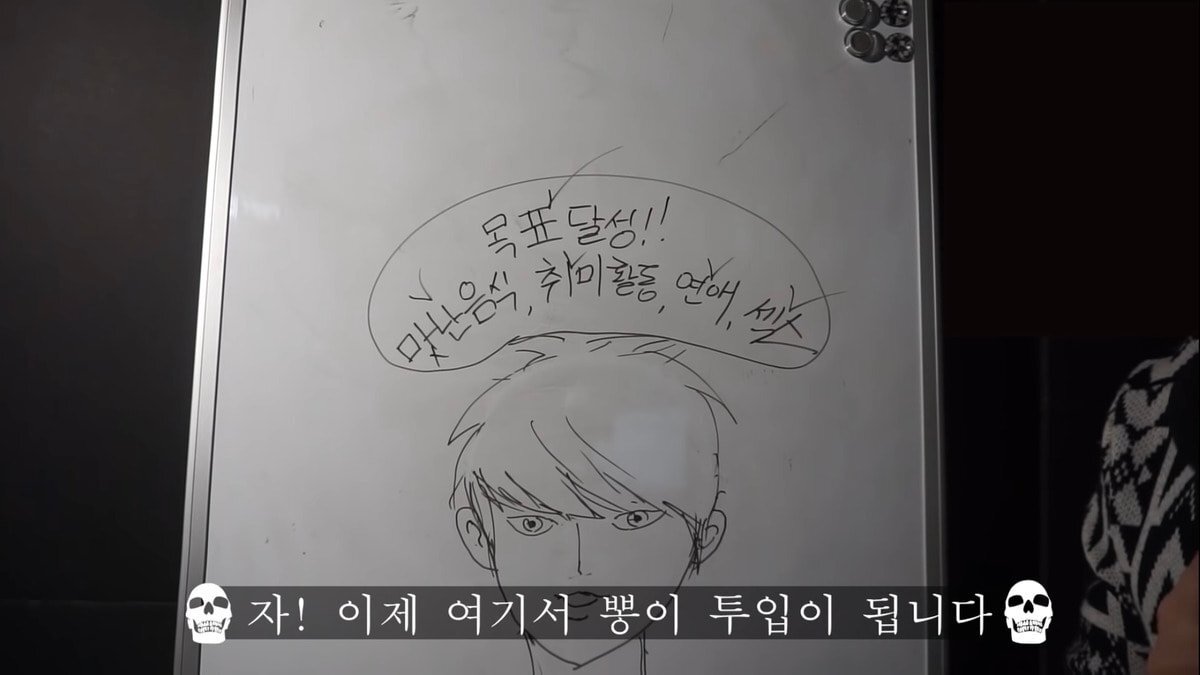 목표 달성!!
맛난음식, 취미활동, 연애, 섹X
자! 이제 여기서 뽕이 투입이 됩니다